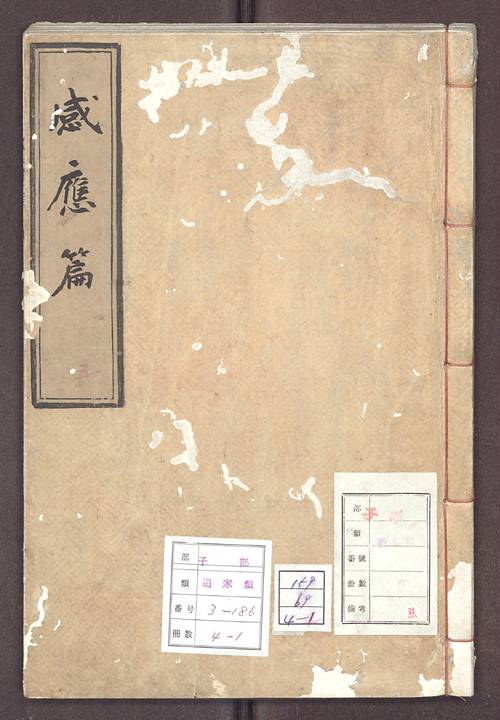 感應篇
部 子部
類 道家類
番号 3-186
冊数 4-1
159
69
4-1
部 子
類
番號
冊數
備考